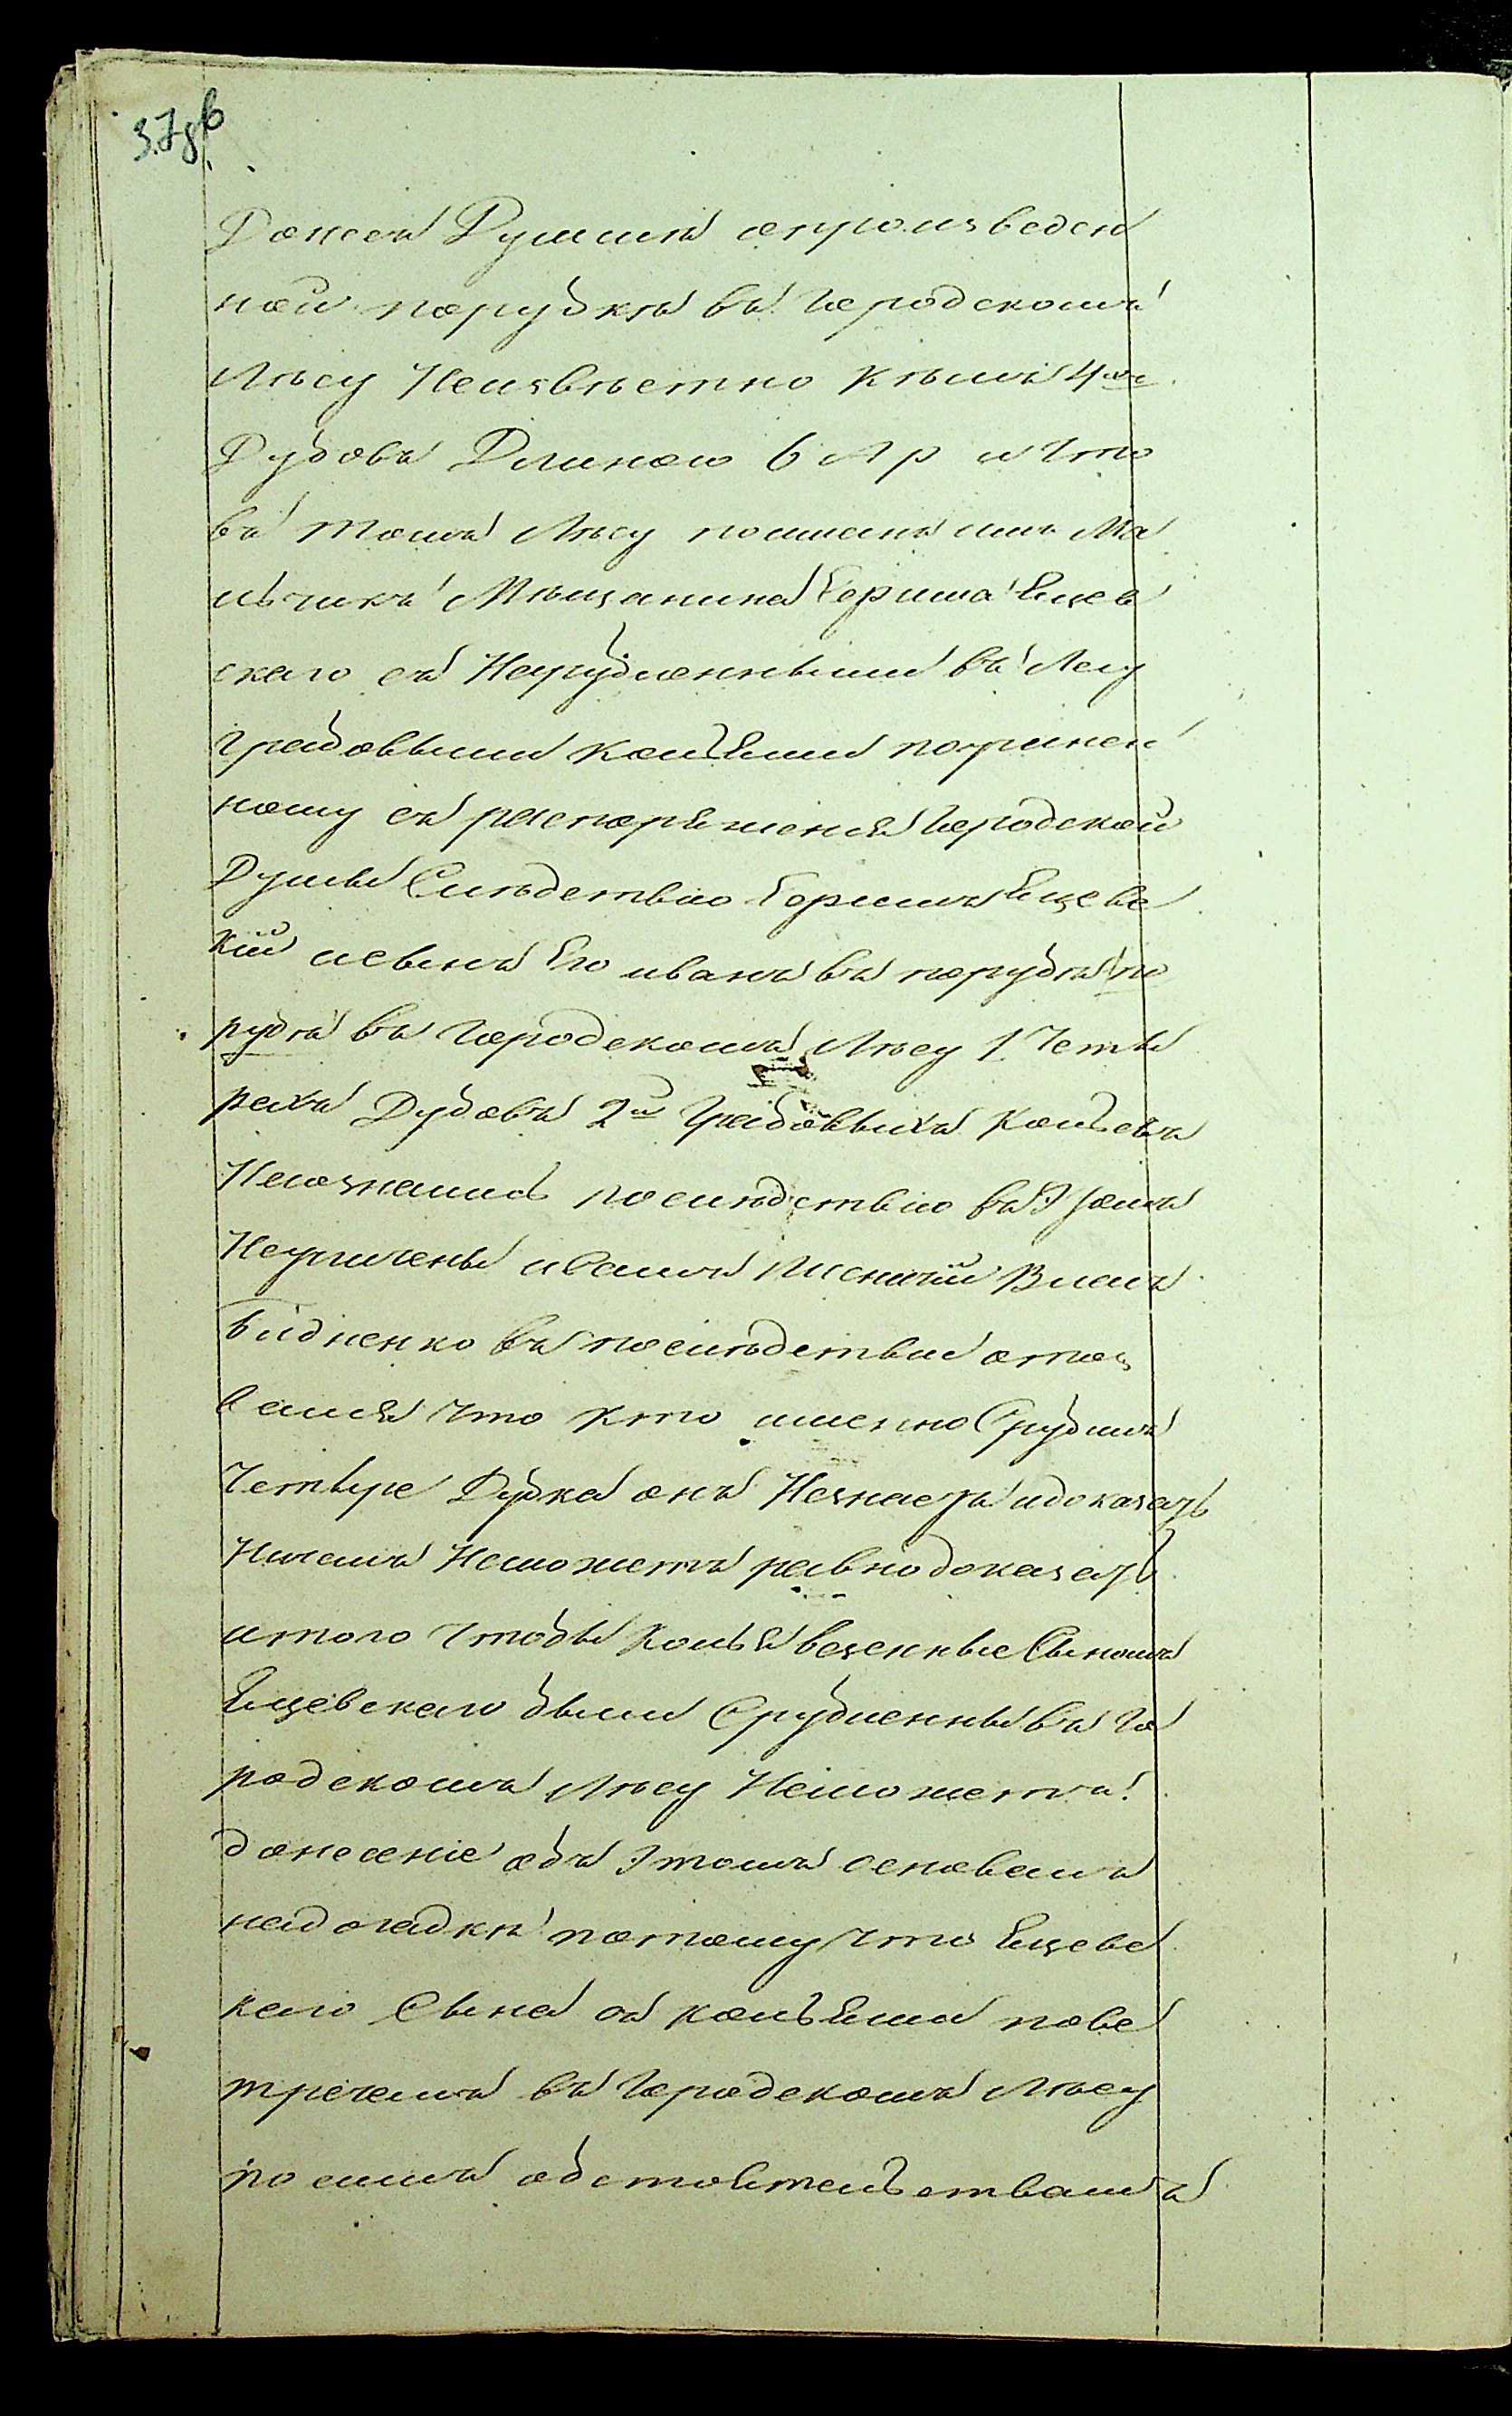 Донесъ Думѣ опроизведен
ной порубкѣ въ Городскомъ
Лѣсу Неизвѣстно Кѣмъ 4хъ
Дубовъ Длиною 6 Ар и Что
въ томъ Лѣсу пойманъ имъ Ма
льчикъ Мѣщанина Ецев
скаго съ Нарубленными въ Лесу
грабовыми Кольями починен
ному съ распоряженія Городской
Думы Слѣдствію Ецевс
кій исынъ Его иванъ въ порубкѣ по
рубкѣ въ Городскомъ Лѣсу 1. Четы
рехъ Дубовъ 2й Грабовыхъ Кольевъ
Несознались последствію въ Этомъ
Неуличены исамъ Лісничій Власъ
Бідненко въ послѣдствіи отоз
вался Что Кто именно Срубилъ
Четыре Дубка онъ Незнаетъ идоказать
Ничемъ Неможетъ равнодоказать
итого Чтобы Колья везенные Сыномъ
Ецевскаго были Срубленны въ Го
родскомъ Лѣсу Неможетъ!
донесеніе объ Этомъ основалъ
надогадкѣ потому Что Ецевс
каго Сына съ кольями повс
тречалъ въ Городскомъ Лѣсу
посимъ обстоятельствамъ